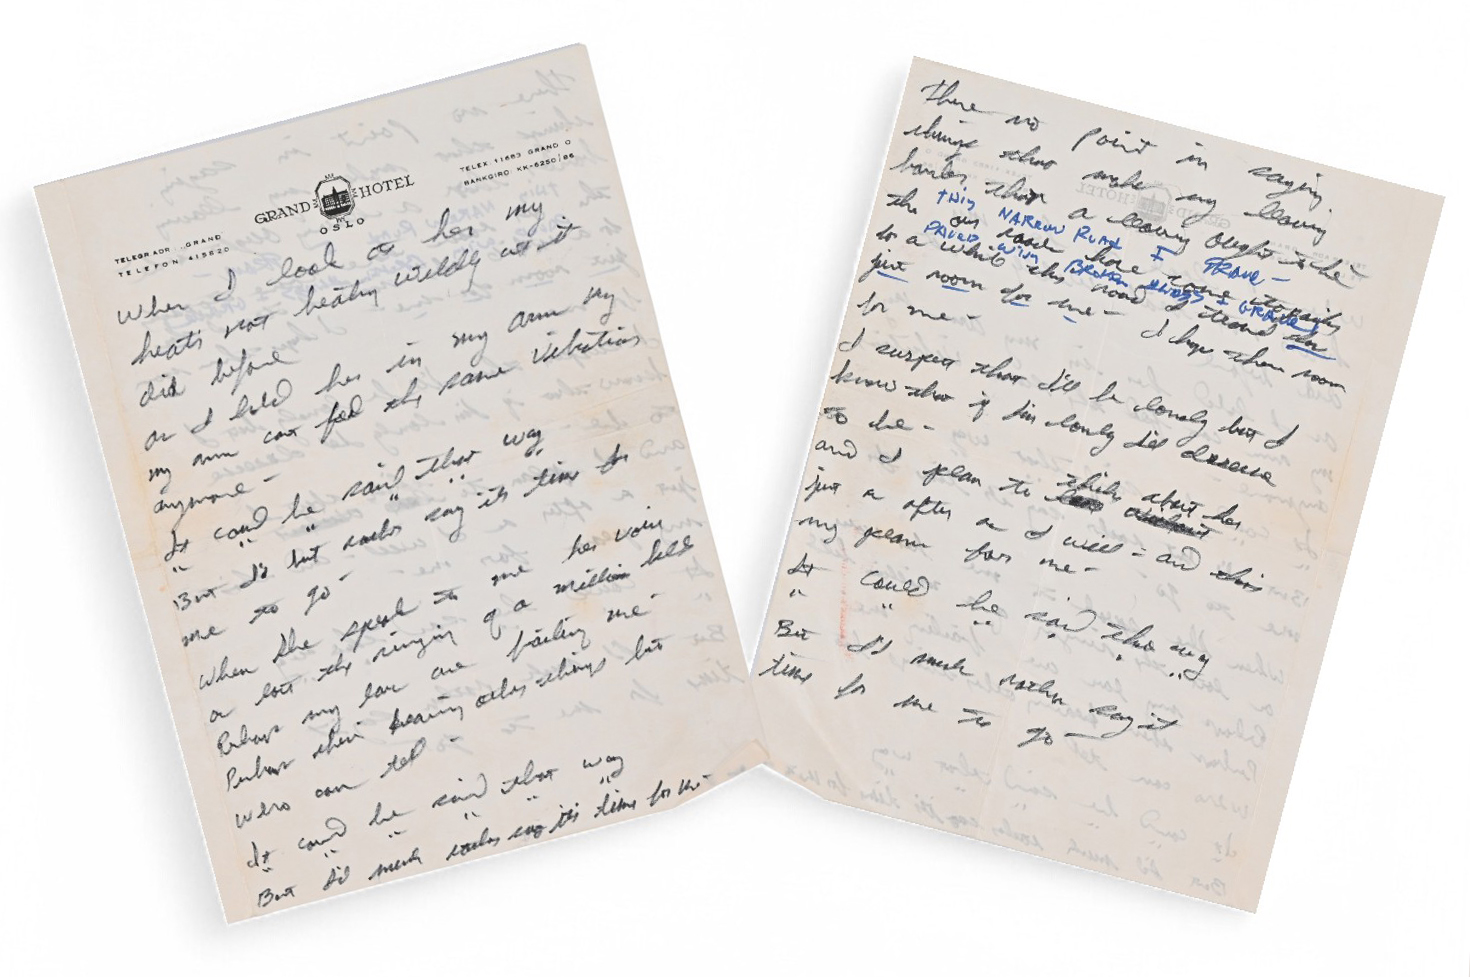 GRAND HOTEL
OSLO
TELEGRADR. GRAND
TELEFON 415620
TELEX 11683 GRAND O
BANKGIRO KK-6250/86
When I look at her my
heats not beating wildly at it
did before
as I hold her in my arm my
my arm cant feel the same vibrations
anymore -
It could be said that way
" " " " "
But I'd but rather say it's time for
me to go -
When she speak to me her voice
a lost the ringing of a million bells
Perhaps my ear are failing me -
Perhaps their hearing other things but
who can tell -
It could be said that way
" " " " "
But I'd much rather say it's time for me
There no point in saying
things that make my leaving
harder than a leaving ought to be -
THIS NARROW ROAD I TRAVEL -
the
PAVED WITH BROKEN I
to a while this road I travel
just room for me - I hope there room
for me -
I suspect that I'll be lonely but I
know that if I'm lonely I'll deserve
to be -
and I plan to think about her
just as after as I will - and this
my plan for me -
It could be said this way
" " " " "
But I'd much rather say it
time for me to go -